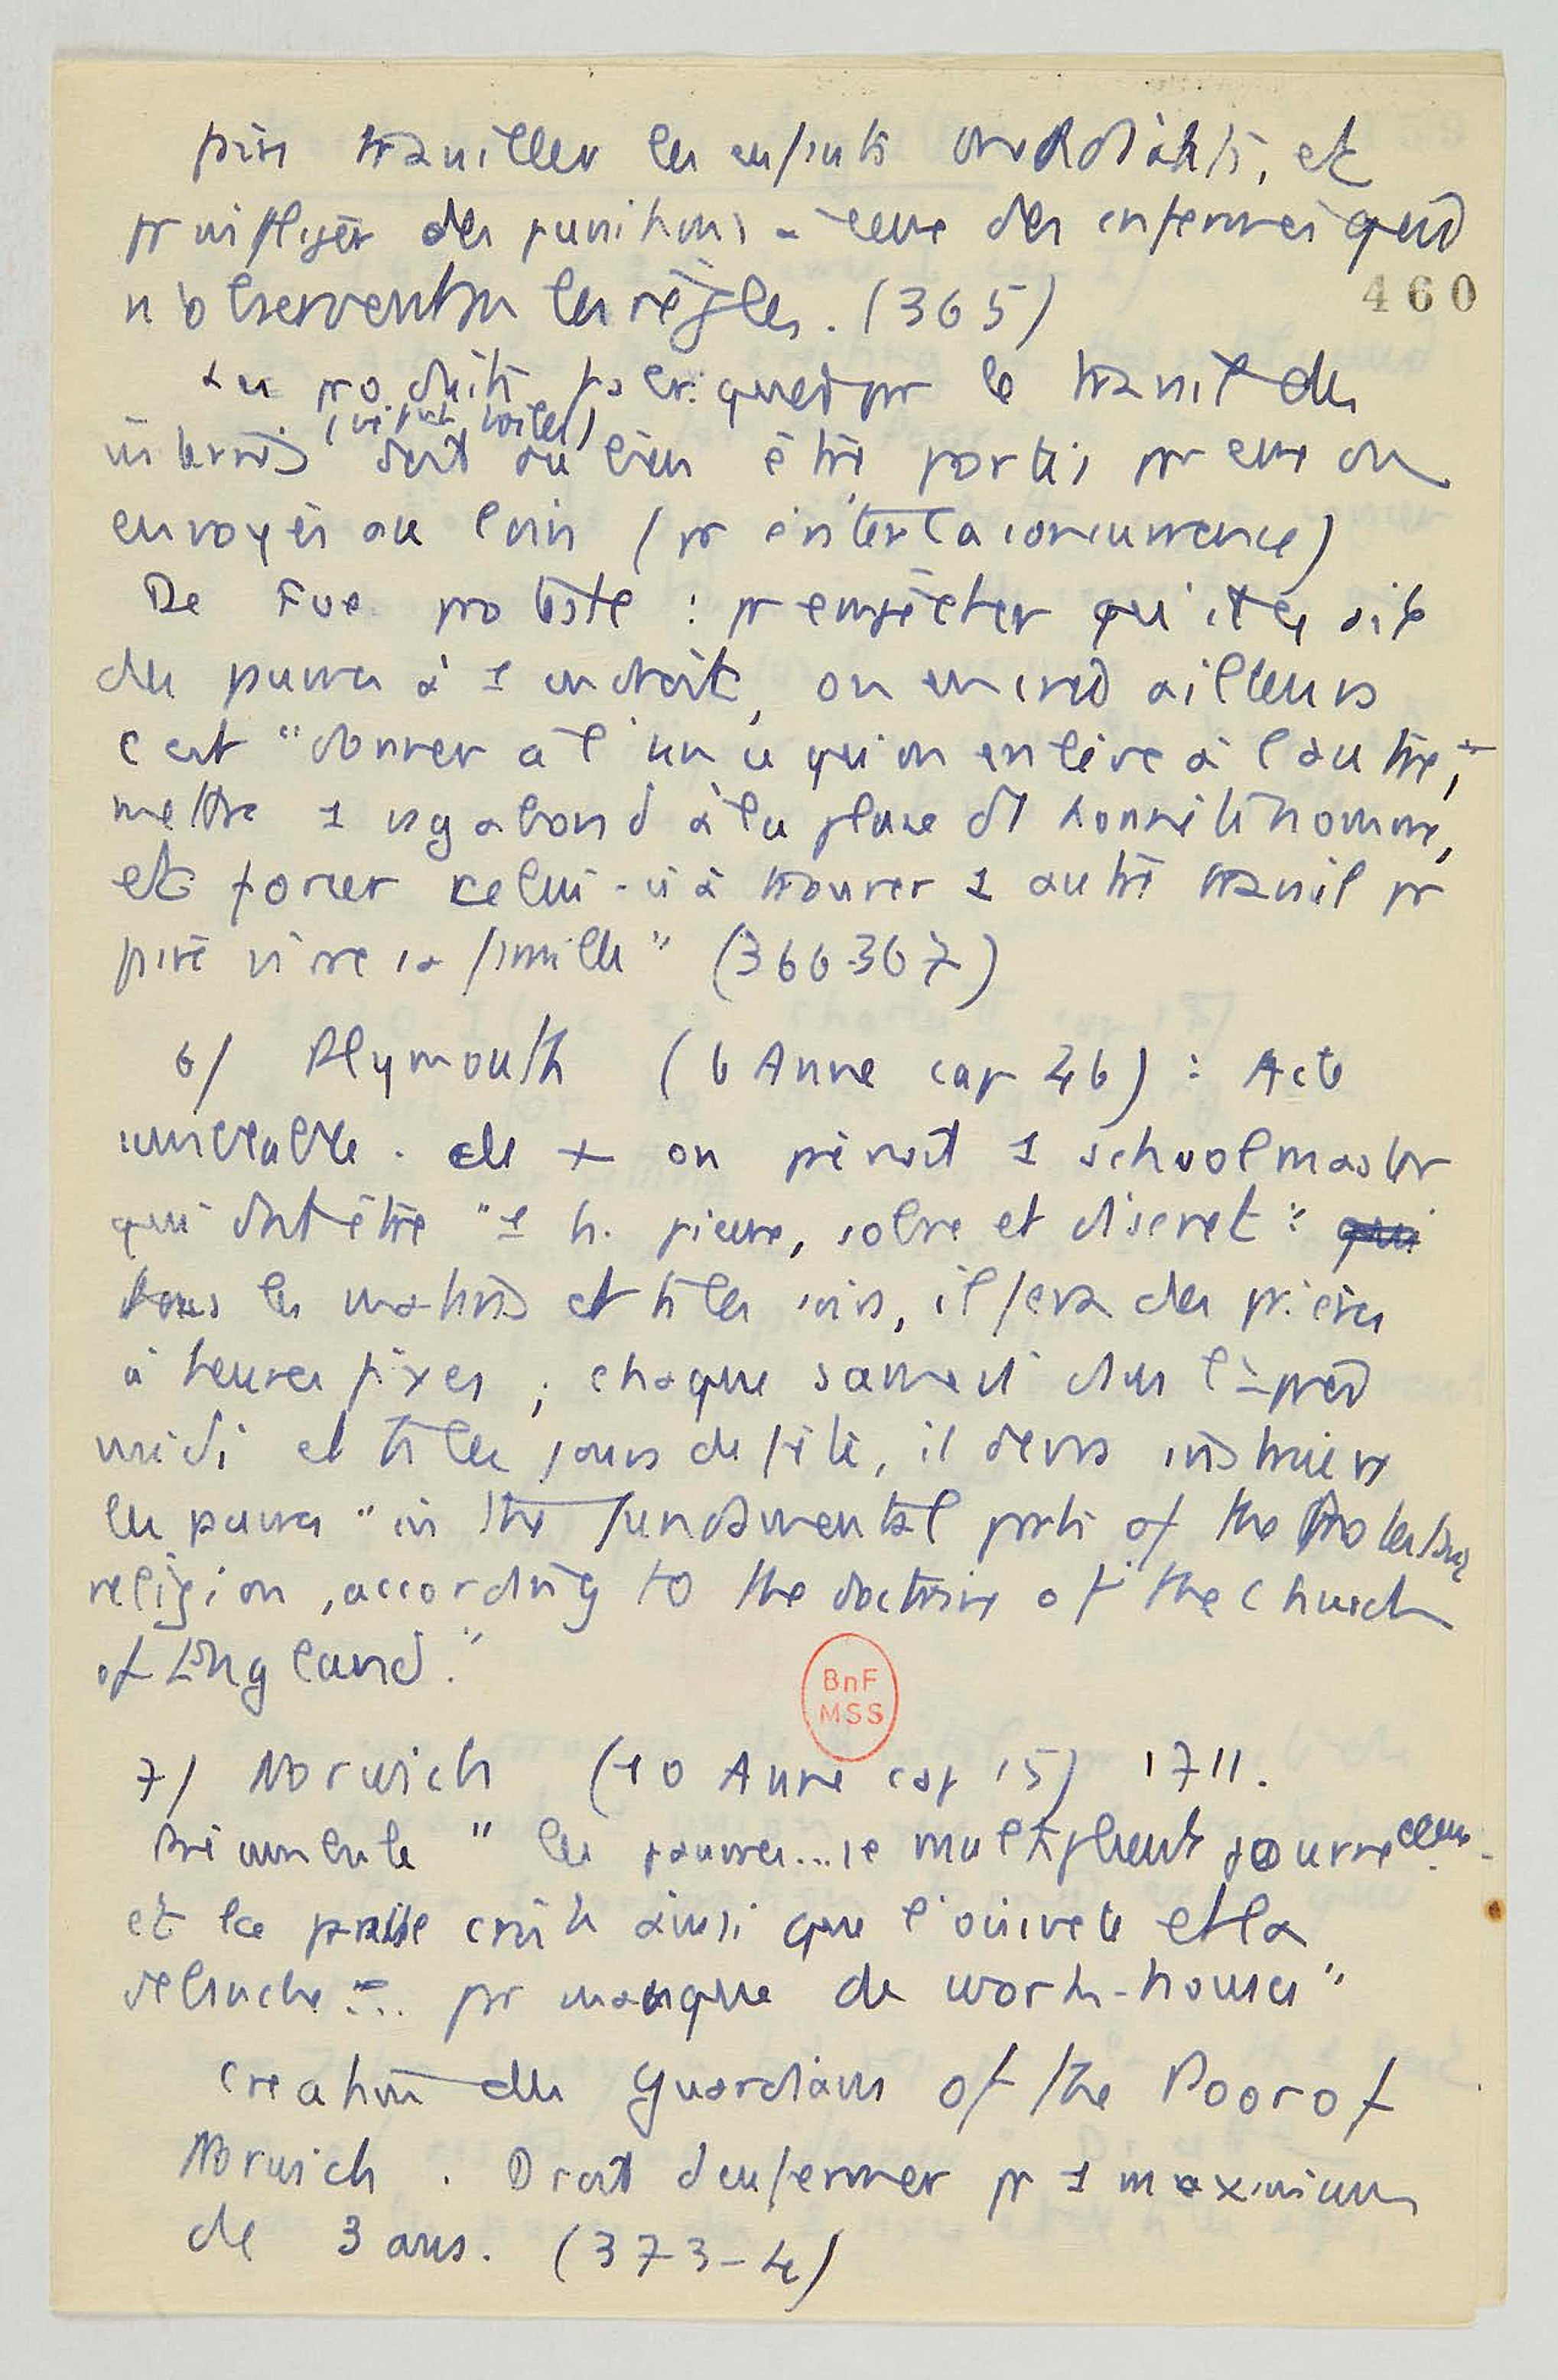 faire travailler les enfants mendiants, et
pr infliger des punitions à ceux des enfermés qui
n'observent pas les règles. (365)
460
Les produits fabriqués par le travail des
internés doit ou bien être portés pr eux ou
envoyés au loin (pr éviter la concurrence)
De Foe proteste : pr empêcher qu'il y ait
des pauvres à 1 endroit, on en crée ailleurs
c'est "donner à l'un ce qu'on enlève à l'autre,
mettre 1 vagabond à la place d'1 honnête homme,
et forcer celui-ci à trouver 1 autre travail pr
faire vivre sa famille" (366-367)
6/ Plymouth (6 Anne cap 46) : Acte
semblable. de + on prévoit 1 schoolmaster
qui doit être "1 h. pieux, sobre et discret" : qui
tous les matins et ts les soirs, il fera des prières
à heures fixes ; chaque samedi dans l'après
midi et ts les jours de fête, il devra instruire
les pauvres "in the fundamental parts of the Protestant
religion, according to the doctrine of the Church
of England."
BnF
MSS
7/ Norwich (10 Anne cap 15) 1711.
Préambule "les pauvres... se multiplient journellemt
et la paresse croît ainsi que l'oisiveté et la
débauche... par manque de work-houses"
Création des Guardians of the Poor of
Norwich. Droit d'enfermer pr 1 maximum
de 3 ans. (373-4)